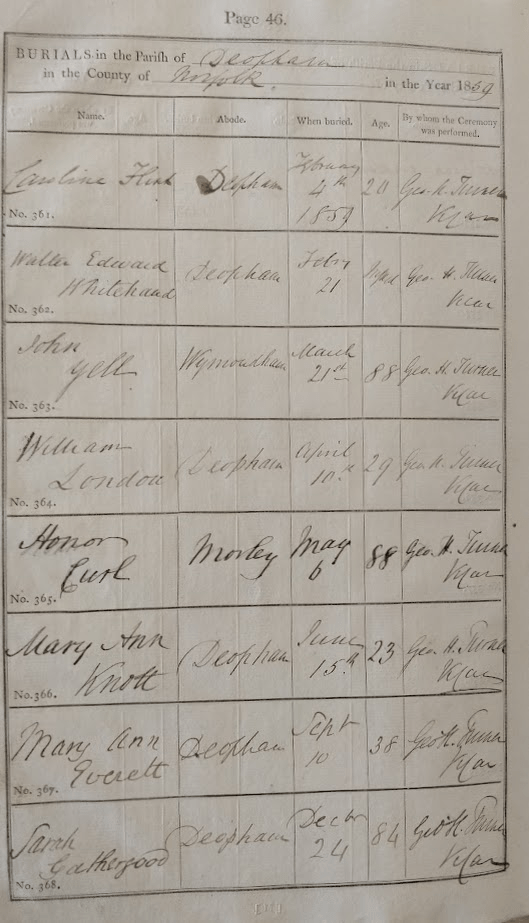 Page 46.
BURIALS in the Parish of Deopham
in the County of Norfolk in the Year 1859
Name. Abode. When buried. Age. By whom the Ceremony was performed.
Caroline Deopham February 4th 1859 20 Geo. H. Turner Vicar
No. 361.
Walter Edward Whitehand Deopham Feby 21 Geo. H. Turner Vicar
No. 362.
John Yell Wymondham March 21st 88 Geo. H. Turner Vicar
No. 363.
William London Deopham April 10th 29 Geo. H. Turner Vicar
No. 364.
Honor Curl Morley May 6 88 Geo. H. Turner Vicar
No. 365.
Mary Ann Knott Deopham June 15th 23 Geo. H. Turner Vicar
No. 366.
Mary Ann Everett Deopham Sept 10 38 Geo H. Turner Vicar
No. 367.
Sarah Gathergood Deopham Decbr 24 84 Geo H. Turner Vicar
No. 368.